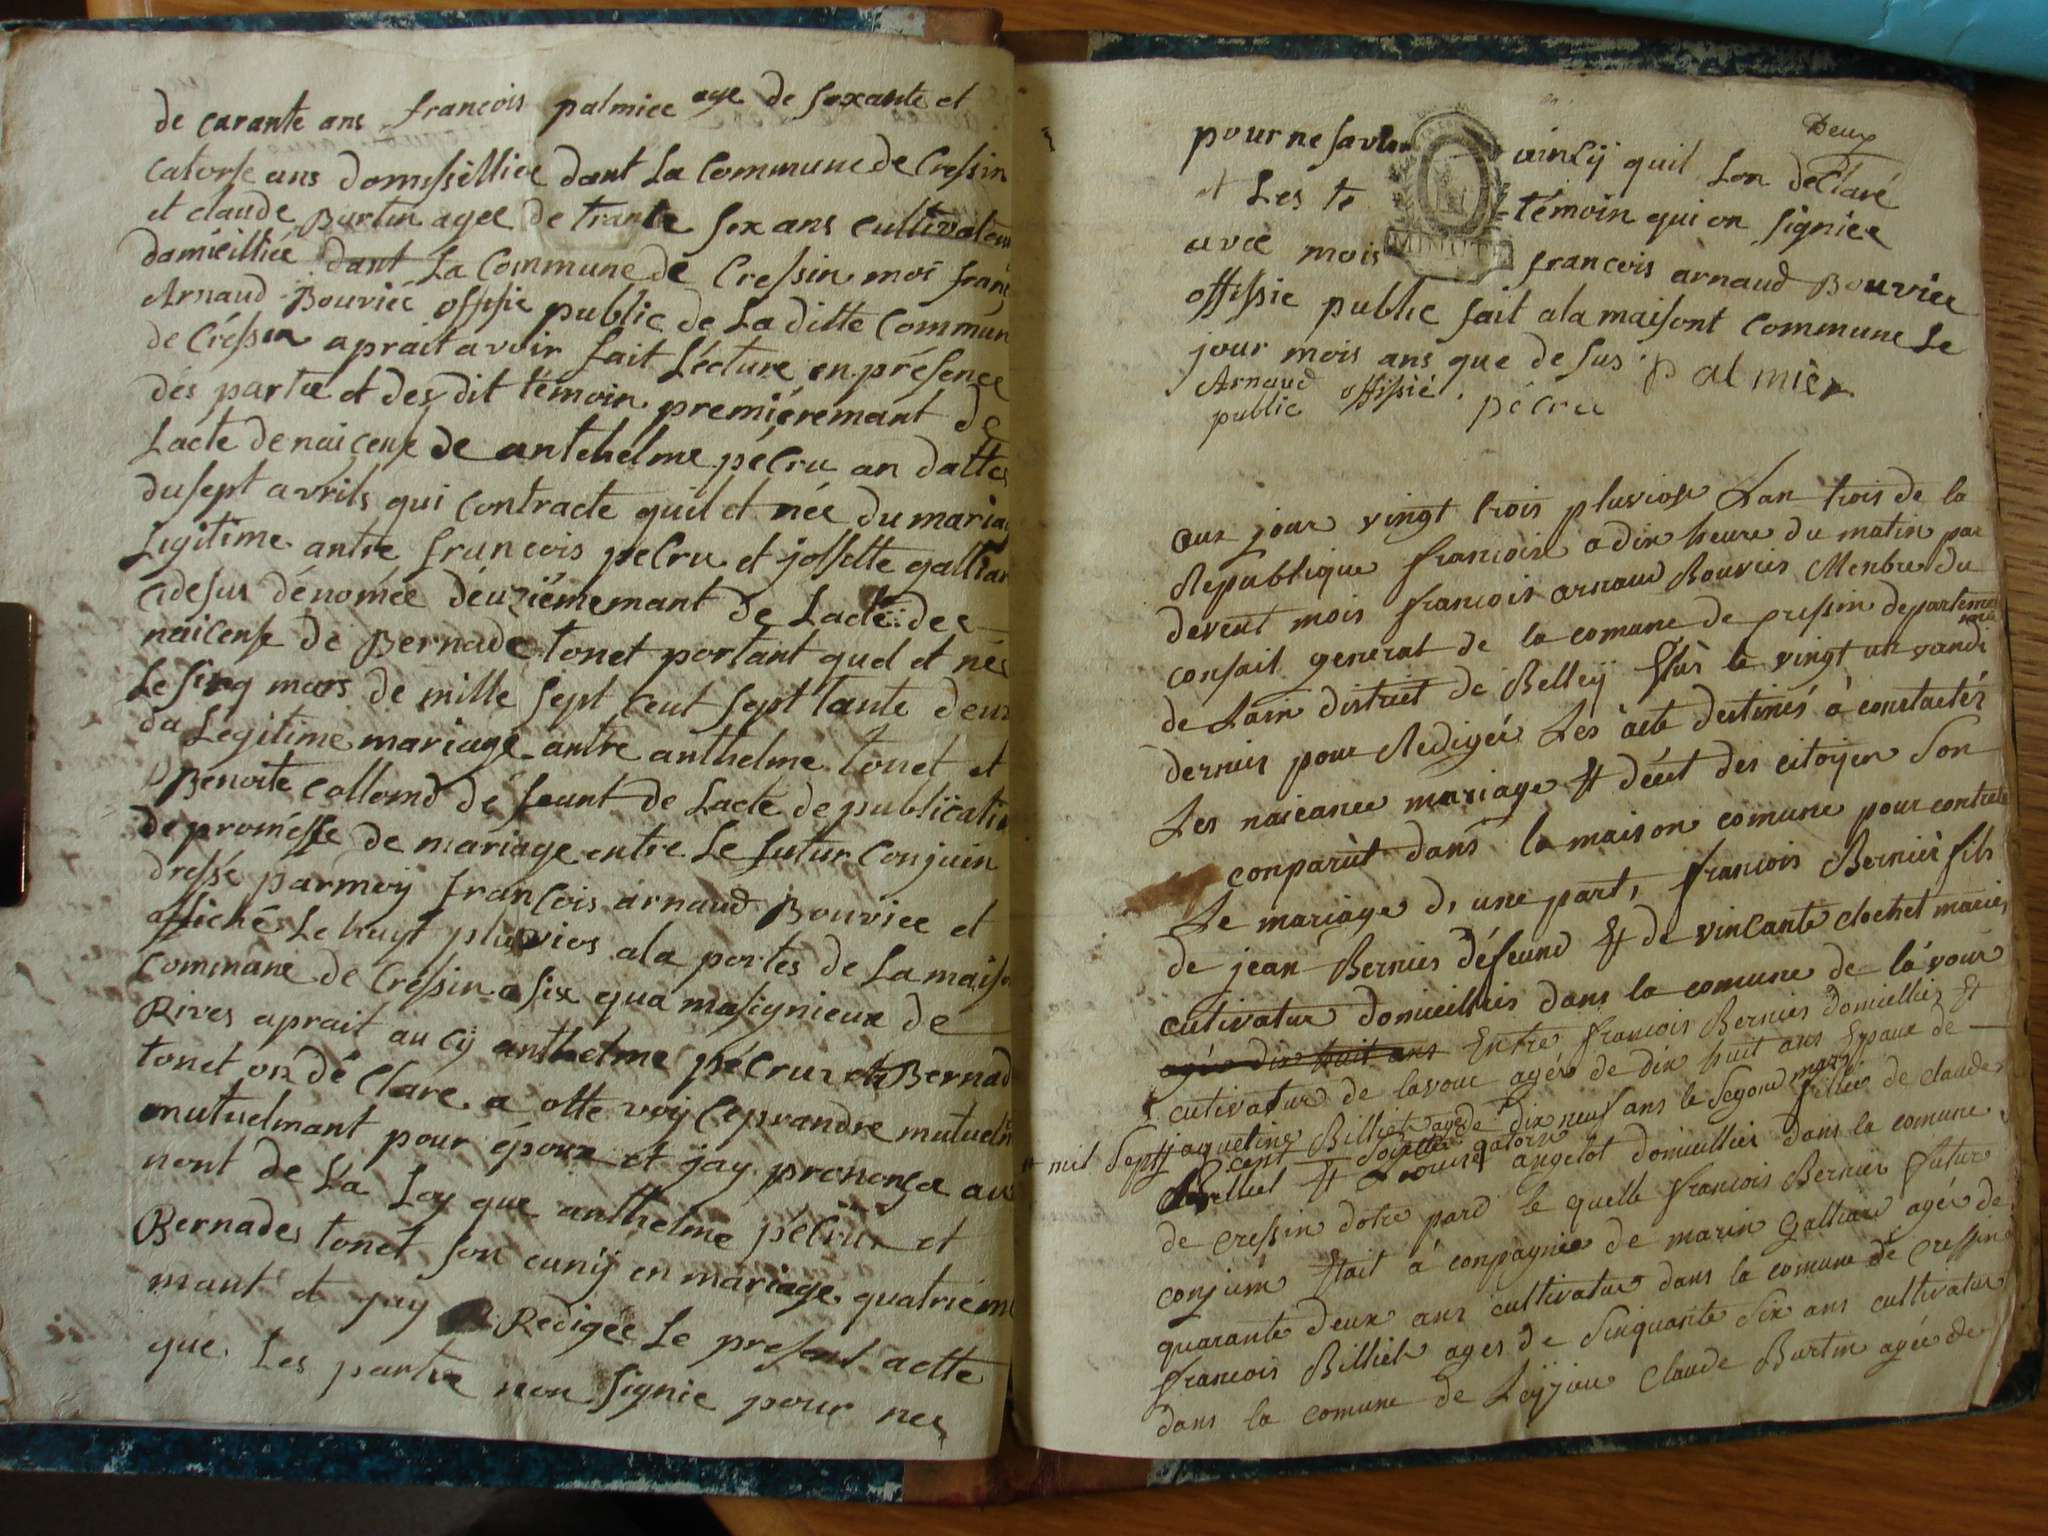 de carante ans francois palmiee age de soxante et
catorse ans domissilliee dant La Commune de Cressin
et claude Burtin agee de trante sex ans cultivateu
damicilliée dant La Commune de Cressin moi franc
Arnaud Bouviée offisie public de La ditte Commun
de Cressin aprait avoir fait Lécture en présence
dés partie et des dit témoin premiéremant de
Lacte de naicense de antehelme pécru an dattes
du sept avrils qui contracte quil et née du mariag
Legitime antre francois pecru et jossette galliar
cidesus dénomée deuziémemant de Lacte de
naicense de Bernade tonet portant quel et née
Le sinq mars de mille sept cent sept tante deux
du Legitime mariage antre anthelme tonet et
Benoite Collomd dé feunt de Lacte de publicatio
de promésse de mariage entre Le futur Conjuin
dressé parmoij françois arnaud Bouviee et
affiché Le huyt pluvios ala portes de La maiso
Commune de Cressin a six qua masignieux de
Rives aprait au cij anthelme pécrux et Bernad
tonet on dé Clare a otte voij ce prandre mutuel
mutuelmant pour époux et jay prononça au
nont de La Loy que anthelme pécrux et
Bernades tonet son eunij en mariage quatriéme
mant et jay Redigée Le present actte
que Les partie non signie pour nes
Deux
pour ne savoir ainsij quil Lon déClaré
et Les te témoin qui on signiee
avec mois francois arnaud Bouviee
offissie public fait ala maisont Commune Le
jour mois ans que desus Palmier
Arnaud offisié pécru
public
aux jour vingt trois pluviose Lan trois de la
Republique francoise a dix heure du matin par
devent mois francois arnaud Bouvies Menbres du
consail general de la comune de cressin departement
de Lain district de Belleij Elus le vingt un vandé
miere
dernies pour Redigér Les acte destinés à constactér
Les naicance mariage Et décet des citoijen Son
conparùt dans la maison comune pour contracte
Le mariage d, une part, francois Berniér fils
de jean Bernies défeund Et de vincante clochet maries
cutivatur domicilliéis dans la comune de lavour
agés dix huit ans Entre francois Bernies domicillies Et
cutivatur de lavour agés de dix huit ans Epaux de
jaquetine Billiet agé de dix neuf ans le segond mars
mil Sept cent soixante quatorse filliés de claude
Billiet Et Louise angelot domicillies dans la comune
de cressin dotre pard le quelle francois Bernier futur
conjuin Etait à conpagniée de marin Galliard agér de
quarante deux ans cultivatur dans la comune de cressin
francois Billiet ages de Sinquante Six ans cultivatur
dans la comune de Claude Burtin agée de